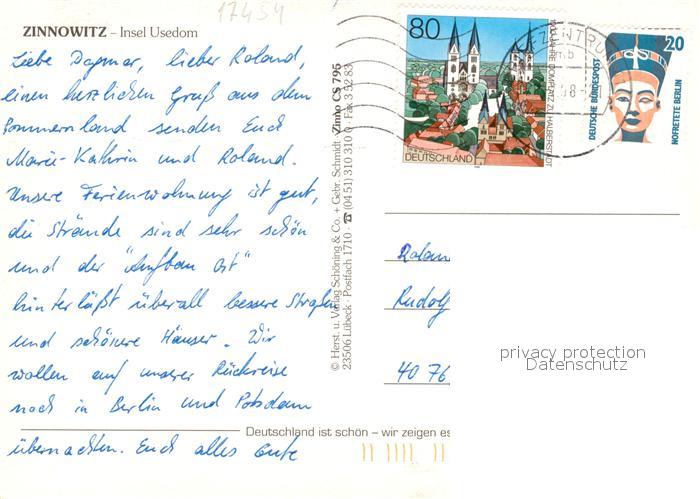 17454
ZINNOWITZ – Insel Usedom
Liebe Dagmar, lieber Roland,
einen herzlichen Gruß aus dem
Sommerland senden Euch
Marie-Kathrin und Roland.
Unsere Ferienwohnung ist gut,
die Strände sind sehr schön
und der "Aufbau Ost"
hinterläßt überall bessere Straßen
und schönere Häuser. Wir
wollen auf unserer Rückreise
noch in Berlin und Potsdam
übernachten. Euch alles Gute
Deutschland ist schön – wir zeigen es
© Herst. u. Verlag Schöning & Co. + Gebr. Schmidt · Zinno CS 795
23506 Lübeck · Postfach 1710 · ☎ (04 51) 310 310 · Fax 3 52 83
80
1000 JAHRE DOMPLATZ ZU HALBERSTADT
DEUTSCHLAND
20
DEUTSCHE BUNDESPOST
NOFRETETE BERLIN
Rolan
Rudolf
40 76
privacy protection
Datenschutz